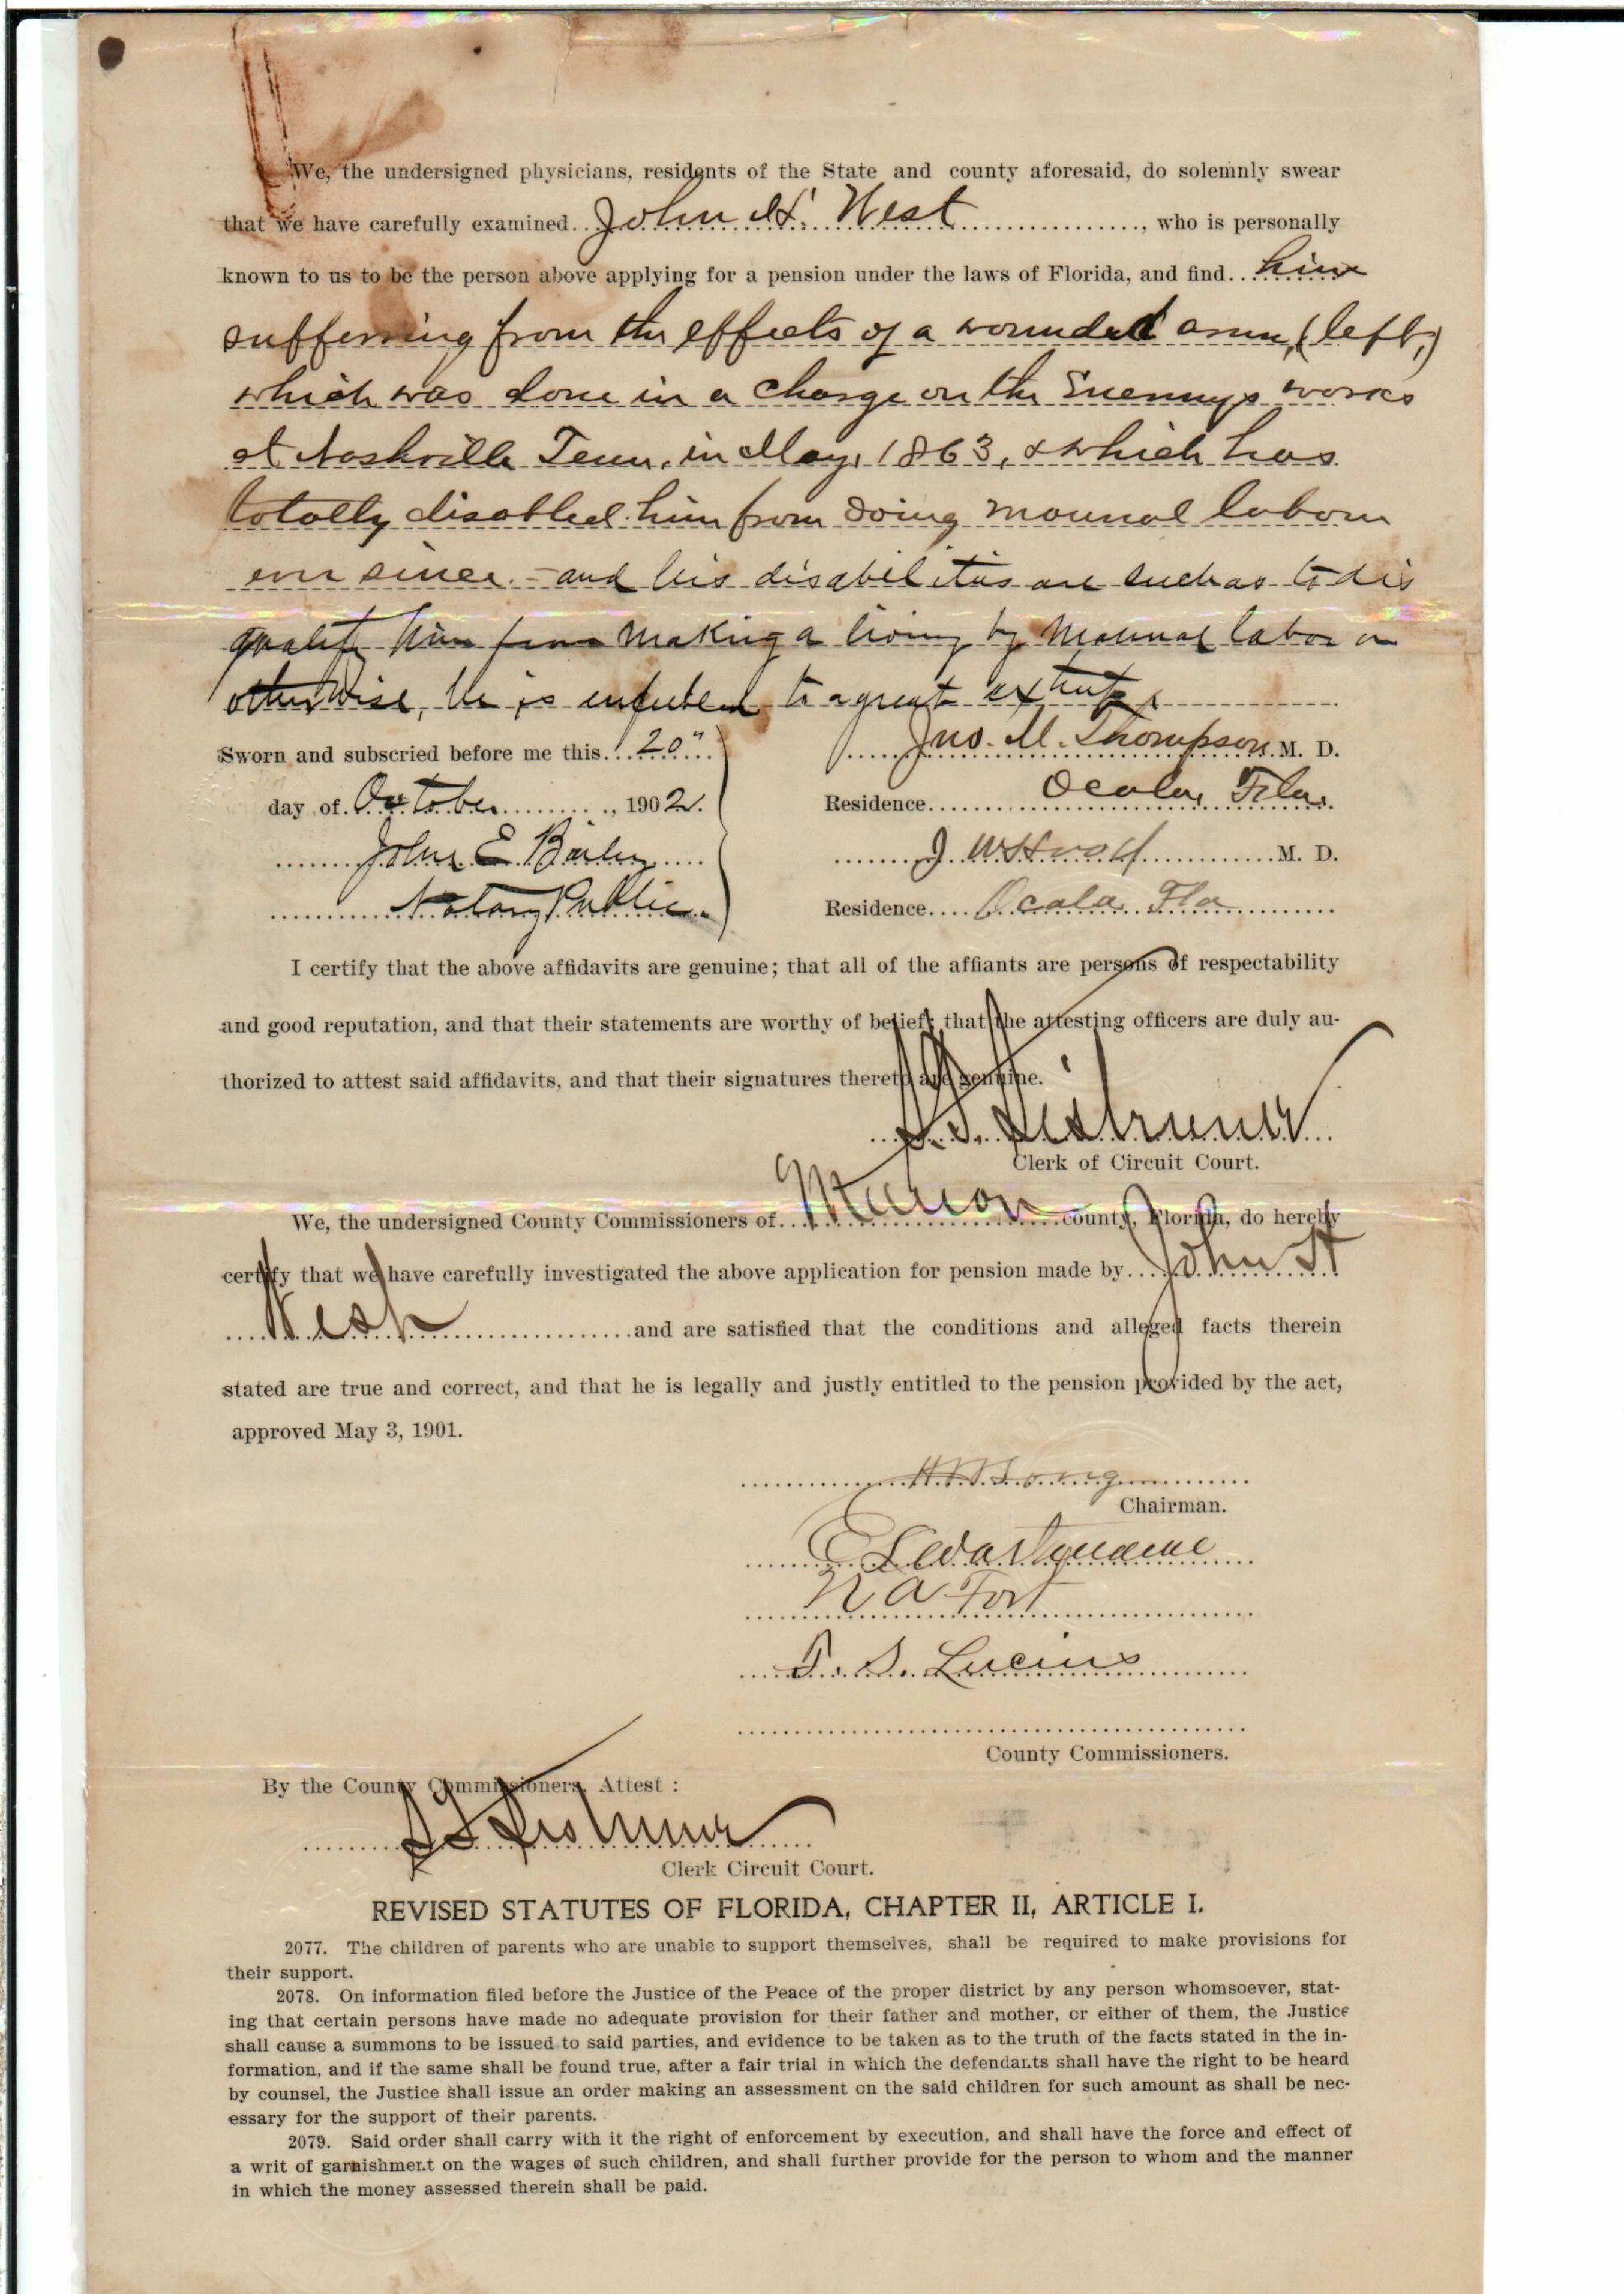 We, the undersigned physicians, residents of the State and county aforesaid, do solemnly swear
that we have carefully examined John H. West, who is personally
known to us to be the person above applying for a pension under the laws of Florida, and find him
suffering from the effects of a wounded arm, (left,)
which was done in a charge on the Enemys works
at Nashville Tenn. in May, 1863, & which has
totally disabled him from doing manual labor
ever since. - and his disabilities are such as to dis
qualify him from making a living by manual labor or
otherwise, he is enfeebled to a great extent.
Sworn and subscried before me this 20"
Jno. M. Thompson M. D.
day of October, 1902.
Residence Ocala, Fla.
John E. Bailey
J. W. Hood M. D.
Notary Public
Residence Ocala Fla
I certify that the above affidavits are genuine; that all of the affiants are persons of respectability
and good reputation, and that their statements are worthy of belief; that the attesting officers are duly au-
thorized to attest said affidavits, and that their signatures thereto are genuine.
S. T. Sistrunk
Clerk of Circuit Court.
We, the undersigned County Commissioners of Marion county, Florida, do hereby
certify that we have carefully investigated the above application for pension made by John H
West and are satisfied that the conditions and alleged facts therein
stated are true and correct, and that he is legally and justly entitled to the pension provided by the act,
approved May 3, 1901.
Chairman.
E L Wartmann
N A Fort
S. Lucius
County Commissioners.
By the County Commissioners, Attest :
S T Sistrunk
Clerk Circuit Court.
REVISED STATUTES OF FLORIDA, CHAPTER II, ARTICLE I.
2077. The children of parents who are unable to support themselves, shall be required to make provisions for
their support.
2078. On information filed before the Justice of the Peace of the proper district by any person whomsoever, stat-
ing that certain persons have made no adequate provision for their father and mother, or either of them, the Justice
shall cause a summons to be issued to said parties, and evidence to be taken as to the truth of the facts stated in the in-
formation, and if the same shall be found true, after a fair trial in which the defendants shall have the right to be heard
by counsel, the Justice shall issue an order making an assessment on the said children for such amount as shall be nec-
essary for the support of their parents.
2079. Said order shall carry with it the right of enforcement by execution, and shall have the force and effect of
a writ of garnishment on the wages of such children, and shall further provide for the person to whom and the manner
in which the money assessed therein shall be paid.